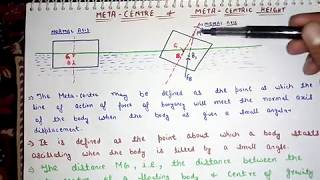 META-CENTRE & META-CENTRIC HEIGHT
NORMAL AXIS
NORMAL AXIS
G
B
G
B
B₁
FB
1) The Meta-centre may be defined as the point at which the
line of action of force of buoyancy will meet the normal axis
of the body when the body is given a small angular
displacement.
2) It is defined as the point about which a body starts
oscillating when the body is tilted by a small angle.
3) The distance MG, i.e, the distance between the
of a floating body & centre of gravity